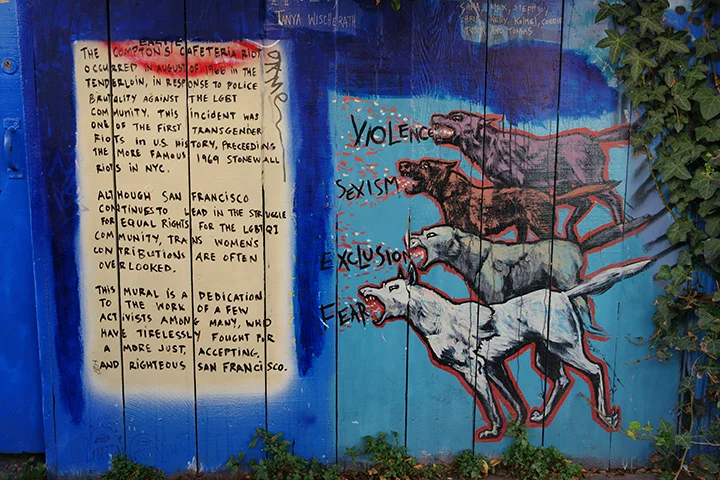 TANYA WISCHERATH
THE COMPTON'S CAFETERIA RIOT
OCCURRED IN AUGUST OF 1966 IN THE
TENDERLOIN, IN RESPONSE TO POLICE
BRUTALITY AGAINST THE LGBT
COMMUNITY. THIS INCIDENT WAS
ONE OF THE FIRST TRANSGENDER
RIOTS IN U.S. HISTORY, PRECEEDING
THE MORE FAMOUS 1969 STONEWALL
RIOTS IN NYC.
ALTHOUGH SAN FRANCISCO
CONTINUES TO LEAD IN THE STRUGGLE
FOR EQUAL RIGHTS FOR THE LGBTQI
COMMUNITY, TRANS WOMENS
CONTRIBUTIONS ARE OFTEN
OVERLOOKED.
THIS MURAL IS A DEDICATION
TO THE WORK OF A FEW
ACTIVISTS AMONG MANY, WHO
HAVE TIRELESSLY FOUGHT FOR
A MORE JUST, ACCEPTING,
AND RIGHTEOUS SAN FRANCISCO.
VIOLENCE
SEXISM
EXCLUSION
FEAR